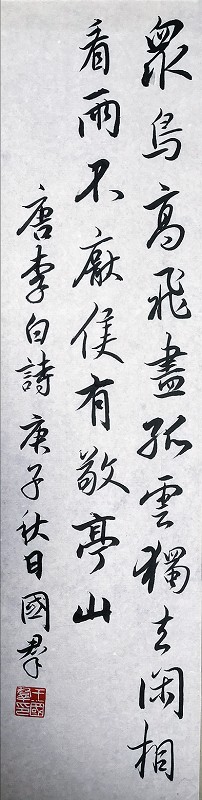 眾鳥高飛盡孤雲獨去閑相
看兩不厭有敬亭山
唐李白詩庚子秋日國群